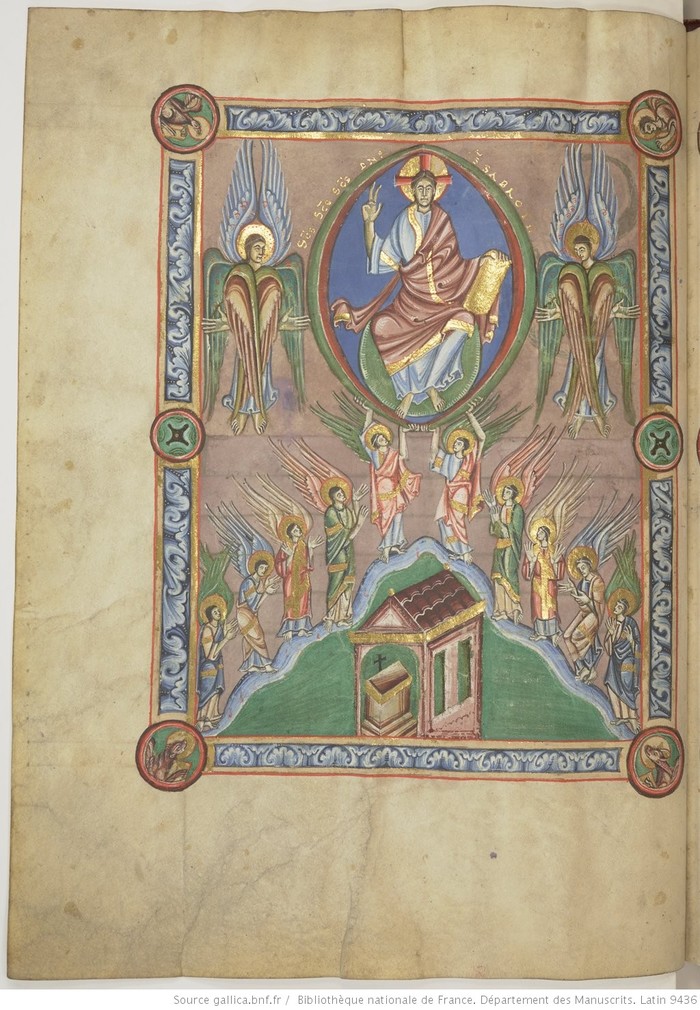 SC̄S SC̄S SC̄S DN̄S
Source gallica.bnf.fr / Bibliothèque nationale de France. Département des Manuscrits. Latin 9436